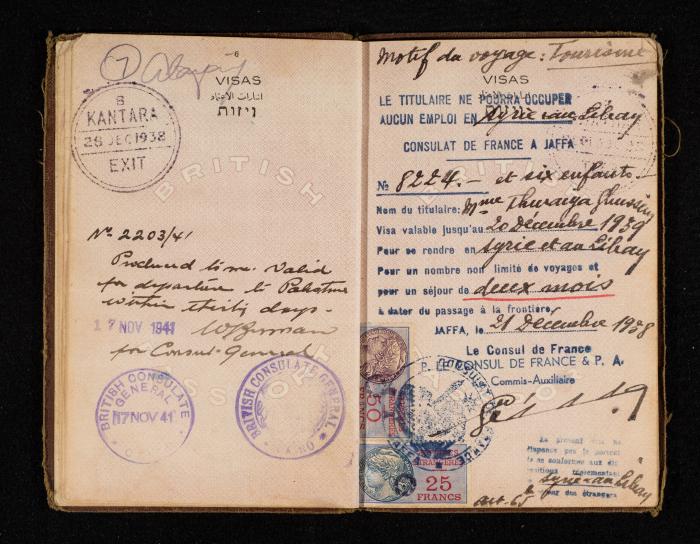 7
6
VISAS
ויזות
8
KANTARA
28 DEC 1938
EXIT
BRITISH
PASSPORT
Nº 2203/41
Produced to me. Valid
for departure to Palestine
within thirty days.
17 NOV 1941
for Consul-General
BRITISH CONSULATE
GENERAL
17 NOV 41
BRITISH CONSULATE GENERAL
Motif du voyage: Tourisme
VISAS
LE TITULAIRE NE POURRA OCCUPER
AUCUN EMPLOI EN Syrie au Liban
CONSULAT DE FRANCE A JAFFA
BRITISH
Nº 8224.- et six enfants.-
Nom du titulaire: Mme Thuraiya
Visa valable jusqu'au 20 Décembre 1939
Pour se rendre en Syrie et au Liban
Pour un nombre non limité de voyages et
pour un séjour de deux mois
à dater du passage à la frontière,
JAFFA, le 21 Décembre 1938
Le Consul de France
CONSUL DE FRANCE & P. A.
Commis-Auxiliaire
50
25
FRANCS
Le présent visa ne
dispense pas le porteur
de se conformer aux dis
Syrie au Liban
jour des étrangers